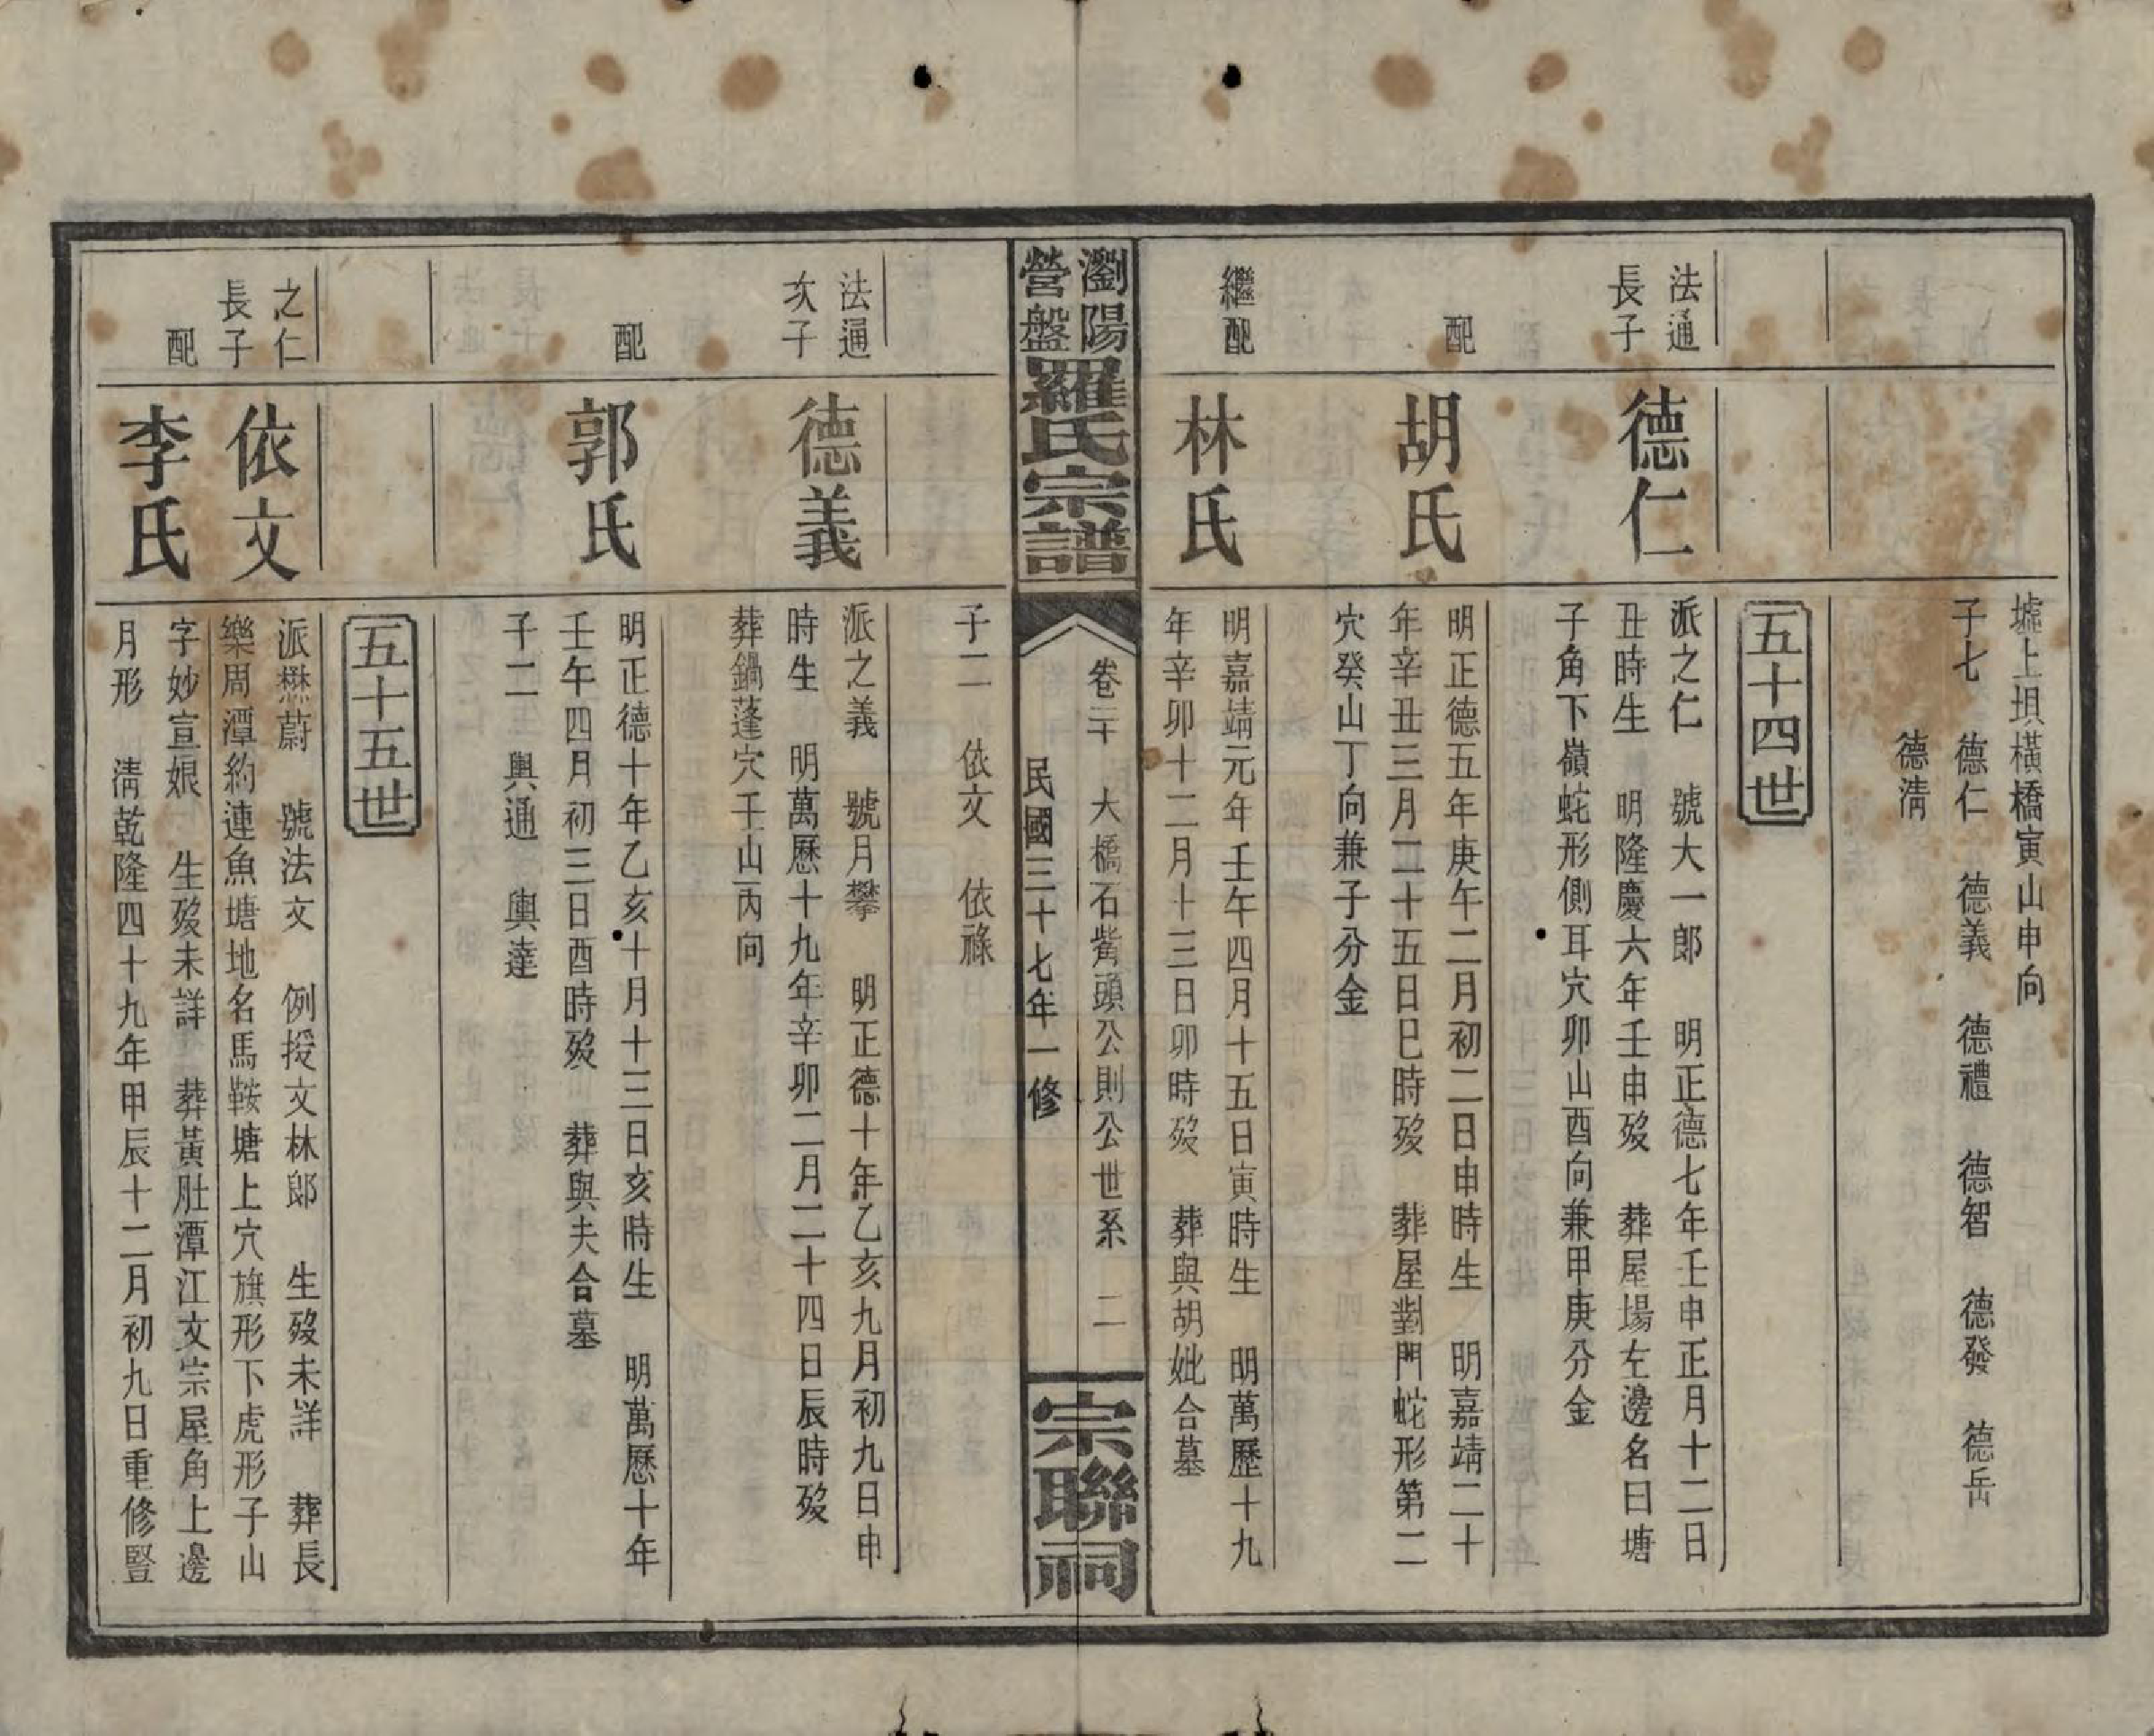 墟上垻橫橋寅山申向
子七　德仁　德義　德禮　德智　德發　德岳
德清
五十四世
法通
長子
德仁
派之仁　號大一郎　明正德七年壬申正月十二日
丑時生　明隆慶六年壬申歿　葬屋場左邊名曰塘
子角下嶺蛇形側耳穴卯山酉向兼甲庚分金
配
胡氏
明正德五年庚午二月初二日申時生　明嘉靖二十
年辛丑三月二十五日巳時歿　葬屋對門蛇形第二
穴癸山丁向兼子分金
繼配
林氏
明嘉靖元年壬午四月十五日寅時生　明萬歷十九
年辛卯十二月十三日卯時歿　葬與胡妣合墓
瀏陽
營盤
羅氏宗譜
卷二十　大橋石觜頭公則公世系　二
民國三十七年一修
宗聯祠
子二　依文　依祿
法通
次子
德義
派之義　號月攀　明正德十年乙亥九月初九日申
時生　明萬歷十九年辛卯二月二十四日辰時歿
葬鍋蓬穴壬山丙向
配
郭氏
明正德十年乙亥十月十三日亥時生　明萬歷十年
壬午四月初三日酉時歿　葬與夫合墓
子二　輿通　輿達
五十五世
之仁
長子
依文
派懋蔚　號法文　例授文林郎　生歿未詳　葬長
樂周潭約連魚塘地名馬鞍塘上穴旗形下虎形子山
配
李氏
字妙宣娘　生歿未詳　葬黃肚潭江文宗屋角上邊
月形　清乾隆四十九年甲辰十二月初九日重修豎